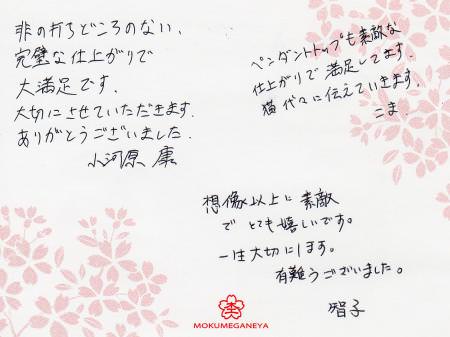 非の打ちどころのない、
完璧な仕上がりで
大満足です。
大切にさせていただきます。
ありがとうございました。
小河原
ペンダントトップも素敵な
仕上がりで満足してます。
猫代々に伝えていきます。
こま
想像以上に素敵
でとても嬉しいです。
一生大切にします。
有難うございました。
智子
MOKUMEGANEYA